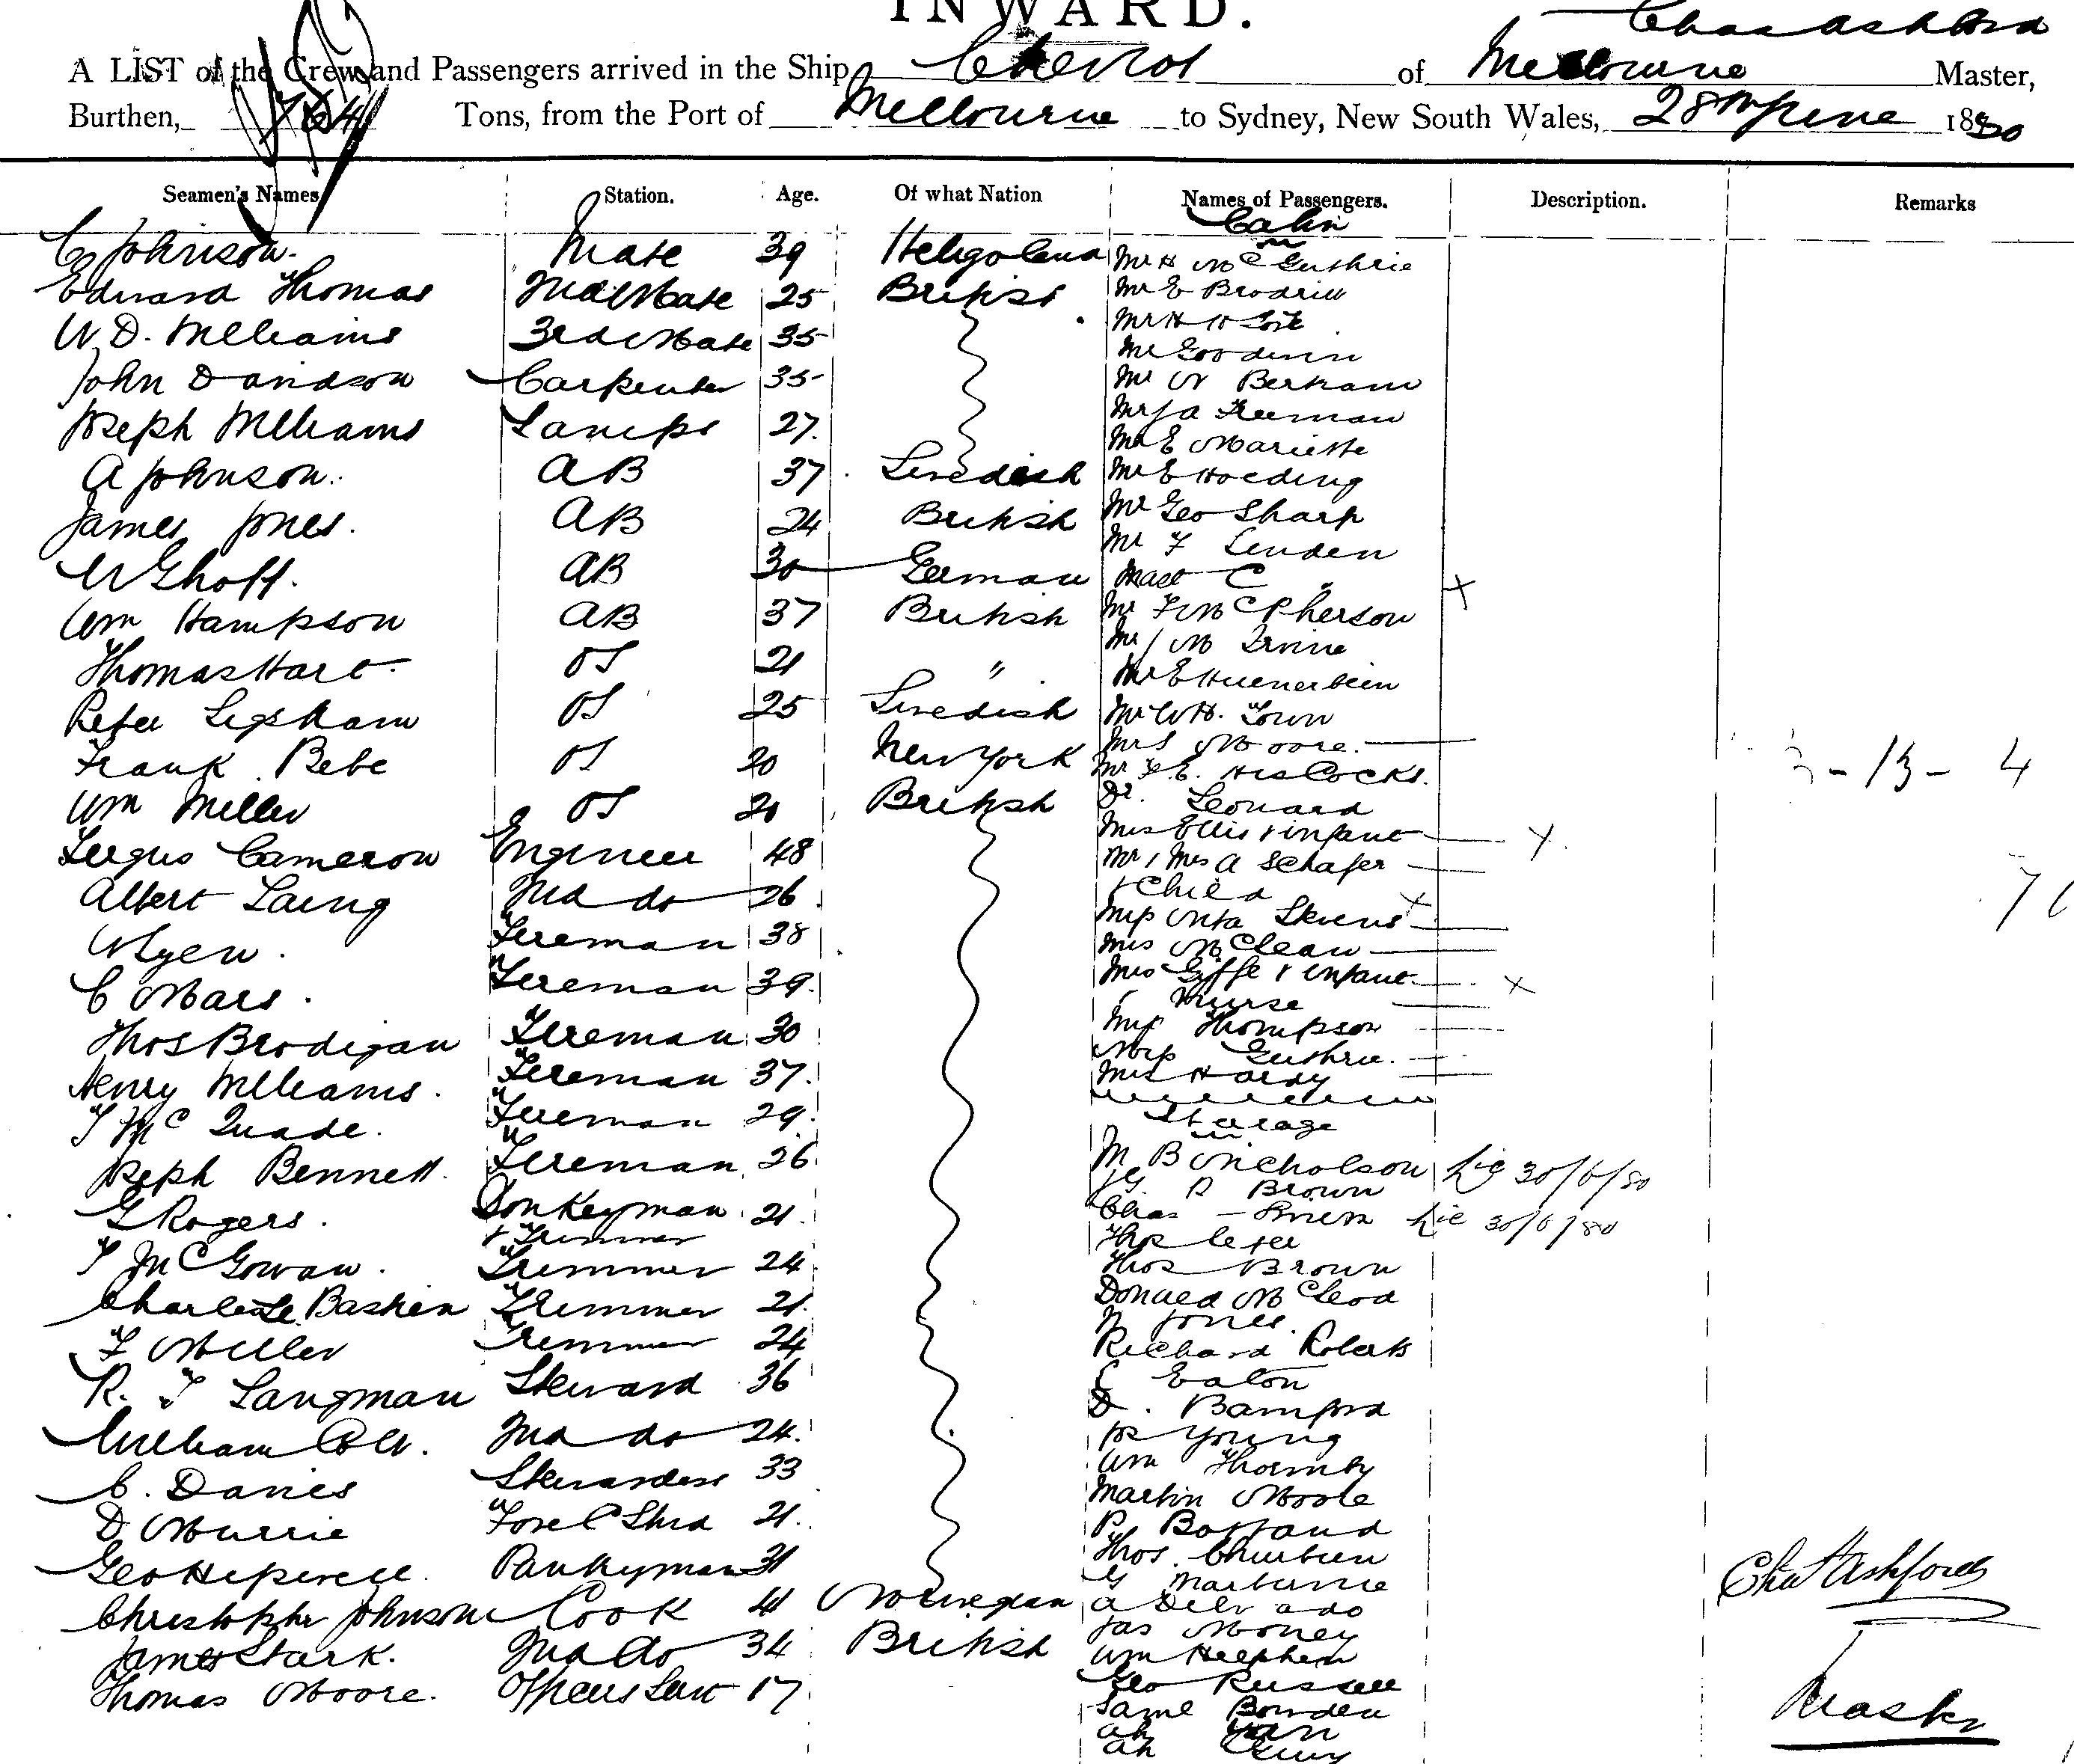 INWARD.
Chas Ashford
A LIST of the Crew and Passengers arrived in the Ship Cheviot of Melbourne Master,
Burthen, 764 Tons, from the Port of Melbourne to Sydney, New South Wales, 28th June 1880
Seamen's Names Station. Age. Of what Nation Names of Passengers. Description. Remarks
Cabin
C Johnson. Mate 39 Heligoland Mr H McGuthrie
Edward Thomas 2nd Mate 25 British Mr E Brodrill
W. D. Williams 3rd Mate 35 Mr H H
Mr Goodwin
John Davidson Carpenter 35 Mr W Bertram
Mr J A Freeman
Joseph Williams Lamps 27. Mr E Mariette
A Johnson. AB 37 Swedish Mr E Hoeding
James Jones. AB 24 British Mr Geo Sharp
Mr F Linden
W Ghoff. AB 30 German Mast C "
Wm Hampson AB 37 British Mr F McPherson
Mr J M Irvine
Thomas Hart OS 21 " Mr E Huenerbein
Peter OS 25 Swedish Mr W H. Town
Mrs Moore.
Frank Bebe OS 20 New York Mr F. E. Hiscocks.
3-13-4
Wm Miller OS 20 British Dr. Leonard
Mrs Ellis & infant
Fergus Cameron Engineer 48 Mr & Mrs A Schafer
& Child
Albert Laing 2nd do 26 Miss Nita Stevens
Myen. Fireman 38 Mrs McClean
C Mars. Fireman 39. Mrs Giffe & infant
& Nurse
Thos Brodigan Fireman 30 Miss Thompson
Miss Guthrie.
Henry Williams. Fireman 37. Mrs Hardy
T McQuade. Fireman 29. Steerage
Joseph Bennett. Fireman 26. M B Nicholson Lic 30/6/80
J G. R Brown
G Rogers. Donkeyman 21. Chas Lic 30/6/80
& Trimmer Thos
T McGowan. Trimmer 24. Thos Brown
Charles Le Baskin Trimmer 21. Donald McCleod
Jones.
F Miller Trimmer 24 Richard Roberts
R. T Langman Steward 36 C Eaton
D. Bamford
William Cole. 2nd do 24. Jos Young
Wm Thornby
C. Davies Stewardess 33 Martin Moore
D Murrie Fore C Stwd 21. P. Bottand
Thos.
Geo Hepwell. Pantryman 31 G
Christopher Johnson Cook 41 Norwegian A Delv ado
Jas Money
James Stark. 2nd do 34 British Wm
Thomas Moore. Officers Servt 17 Geo Russell
Saml Bowden
Ah
Ah
Chas Ashford
Master